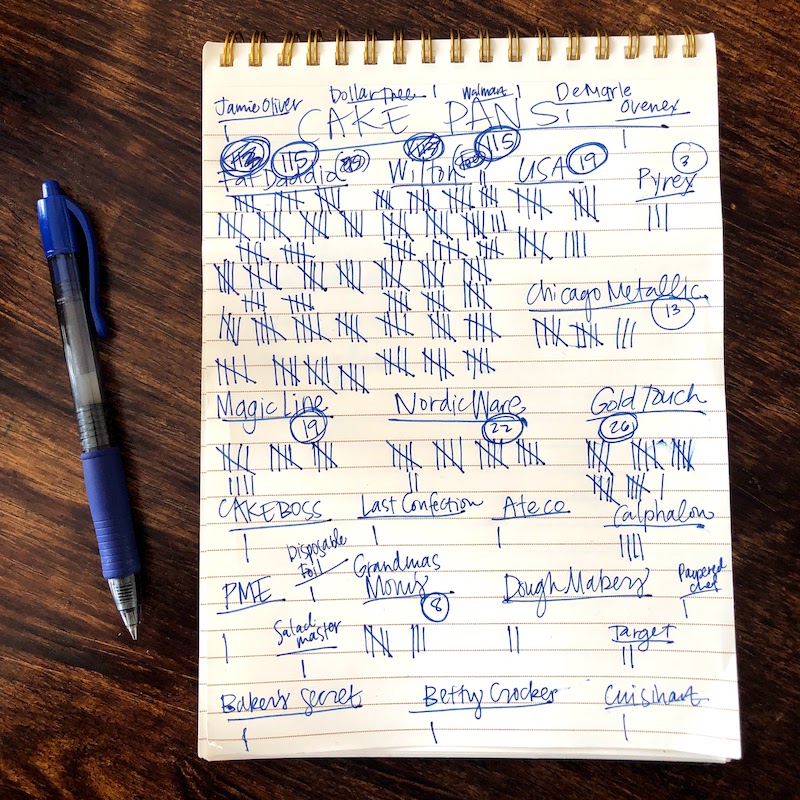 Dollar Tree Walmart DeMarle
Jamie Oliver Ovenex
CAKE PANS
115 115 19 3
Fat Daddio Wilton USA Pyrex
Chicago Metallic
13
Magic Line Nordic Ware Gold Touch
19 22 26
CAKEBOSS Last Confection Ateco Calphalon
Disposable
Foil
PME Grandmas Moms Dough Makers Pampered chef
8
Salad master Target
Bakers Secret Betty Crocker Cuisinart